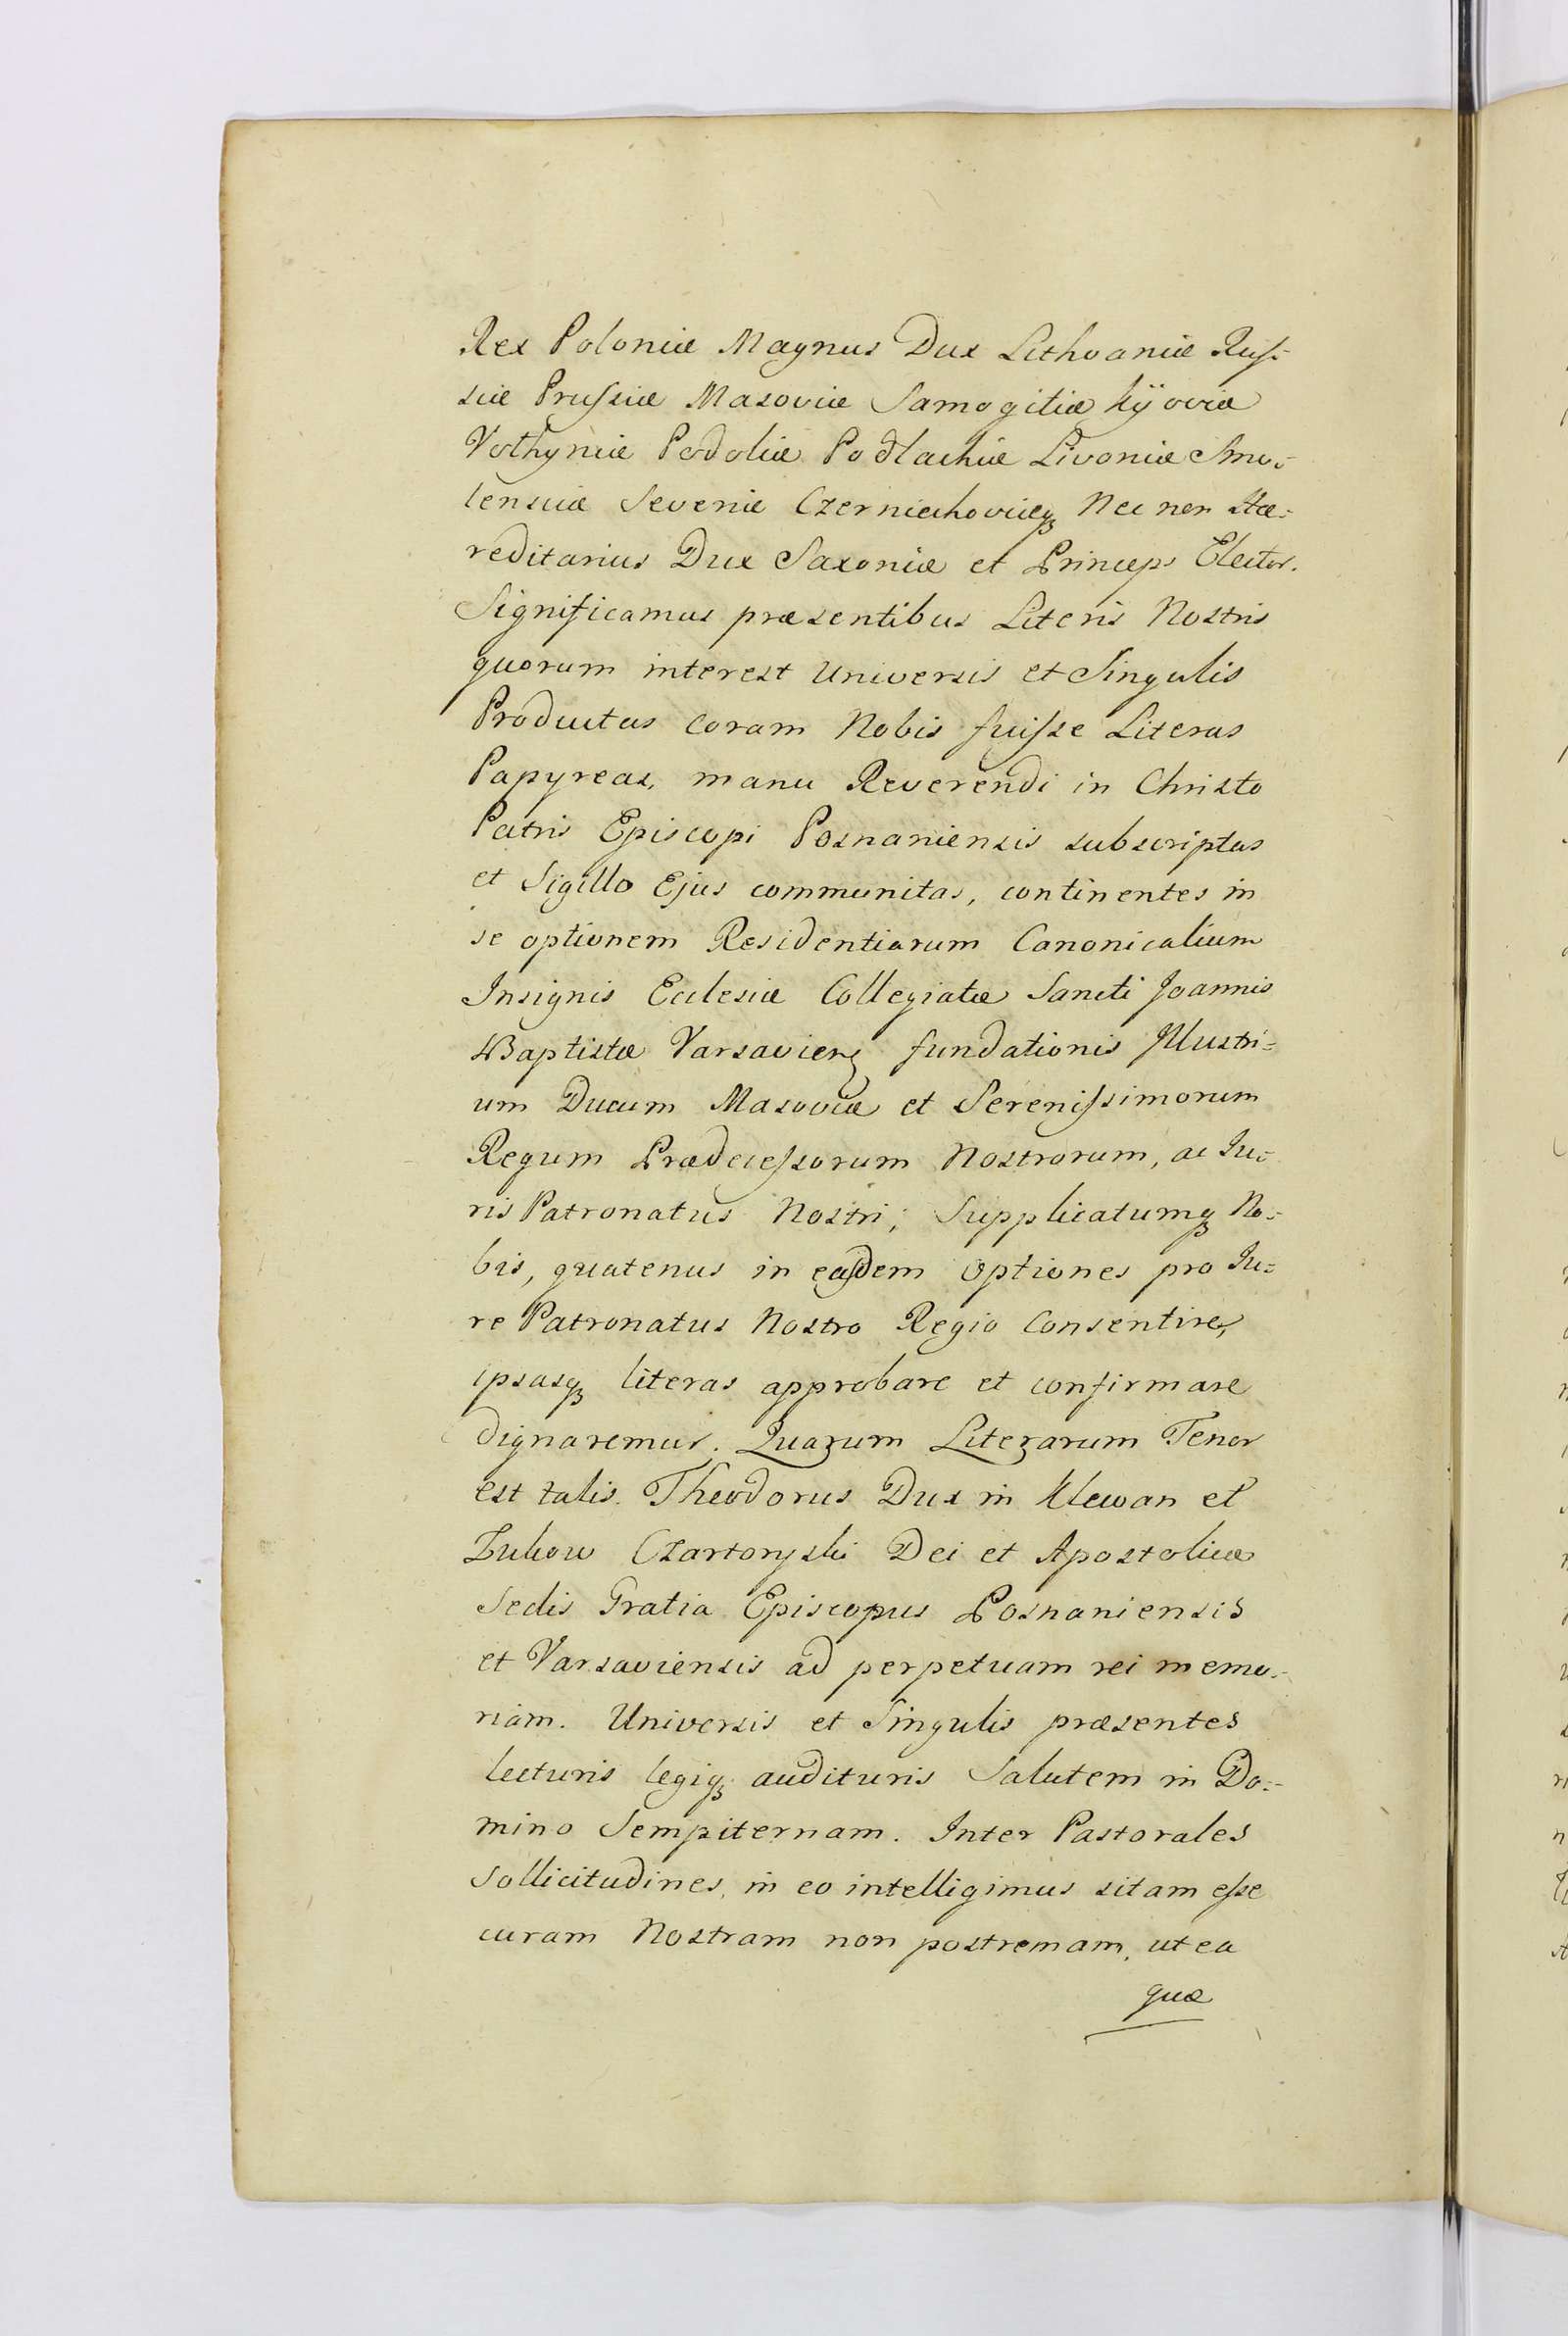 Rex Poloniæ Magnus Dux Lithvaniæ Rus-
siæ Prussiæ Masoviæ Samogitiæ Kÿoviæ
Volhyniæ Podoliæ Podlachiæ Livoniæ Smo-
lensciæ Seveniæ Czerniechoviæq₃ Nec non Hæ-
reditarius Dux Saxoniæ et Princeps Elector.
Significamus præsentibus Literis Nostris
quorum interest Universis et Singulis
Productas coram Nobis fuisse Literas
Papyreas, manu Reverendi in Christo
Patris Episcopi Posnaniensis subscriptas
et Sigillo Ejus communitas, continentes in
se optionem Residentiarum Canonicalium
Insignis Ecclesiæ Collegiatæ Sancti Joannis
Baptistæ Varsavien₃ fundationis Illustri-
um Ducum Masoviæ et Serenissimorum
Regum Prædecessorum Nostrorum, ac Ju-
ris Patronatus Nostri; Supplicatumq₃ No-
bis, quatenus in easdem optiones pro Ju-
re Patronatus Nostro Regio Consentire,
ipsasq₃ literas approbare et confirmare
dignaremur. Quarum Literarum Tenor
est talis. Theodorus Dux in Klewan et
Zukow Czartoryski Dei et Apostolicæ
Sedis Gratia Episcopus Posnaniensis
et Varsaviensis ad perpetuam rei memo-
riam. Universis et Singulis præsentes
lecturis legiq₃ audituris Salutem in Do-
mino Sempiternam. Inter Pastorales
Sollicitudines, in eo intelligimus sitam esse
curam Nostram non postremam, ut ea
quæ